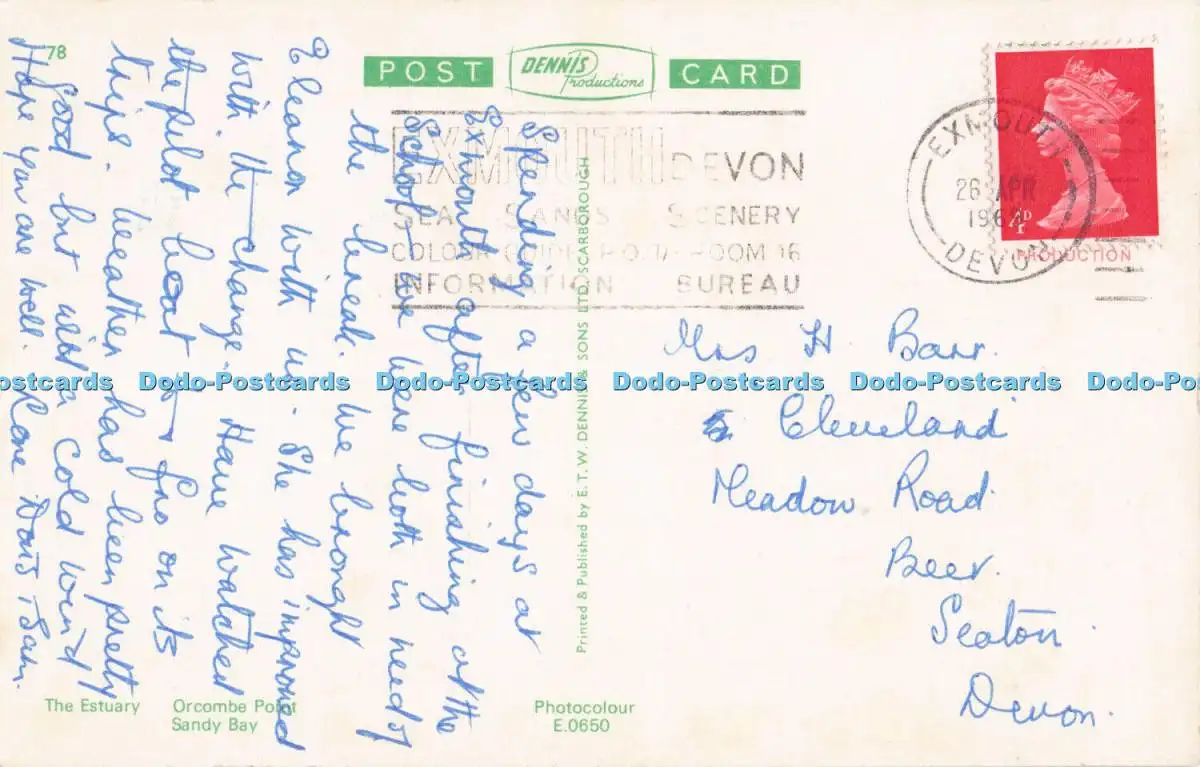 78
POST
DENNIS
Productions
CARD
EXMOUTH DEVON
SEA SANDS SCENERY
COLOUR GUIDE ROOM 16
INFORMATION BUREAU
EXMOUTH
26 APR
196
DEVON
4D
PRODUCTION
Spending a few days at
Exmouth after finishing at the
School. We were both in need of
the break. We brought
Eleanor with us. She has improved
with the change. Have watched
the pilot boat to & fro on its
trips. Weather has been pretty
good but with cold wind
Hope you are well. Love
Printed & Published by E.T.W. DENNIS & SONS LTD., SCARBOROUGH
Mrs H. Barr.
Cleveland
Meadow Road
Beer.
Seaton.
Devon.
The Estuary
Orcombe Point
Sandy Bay
Photocolour
E.0650
Dodo-Postcards Dodo-Postcards Dodo-Postcards Dodo-Postcards